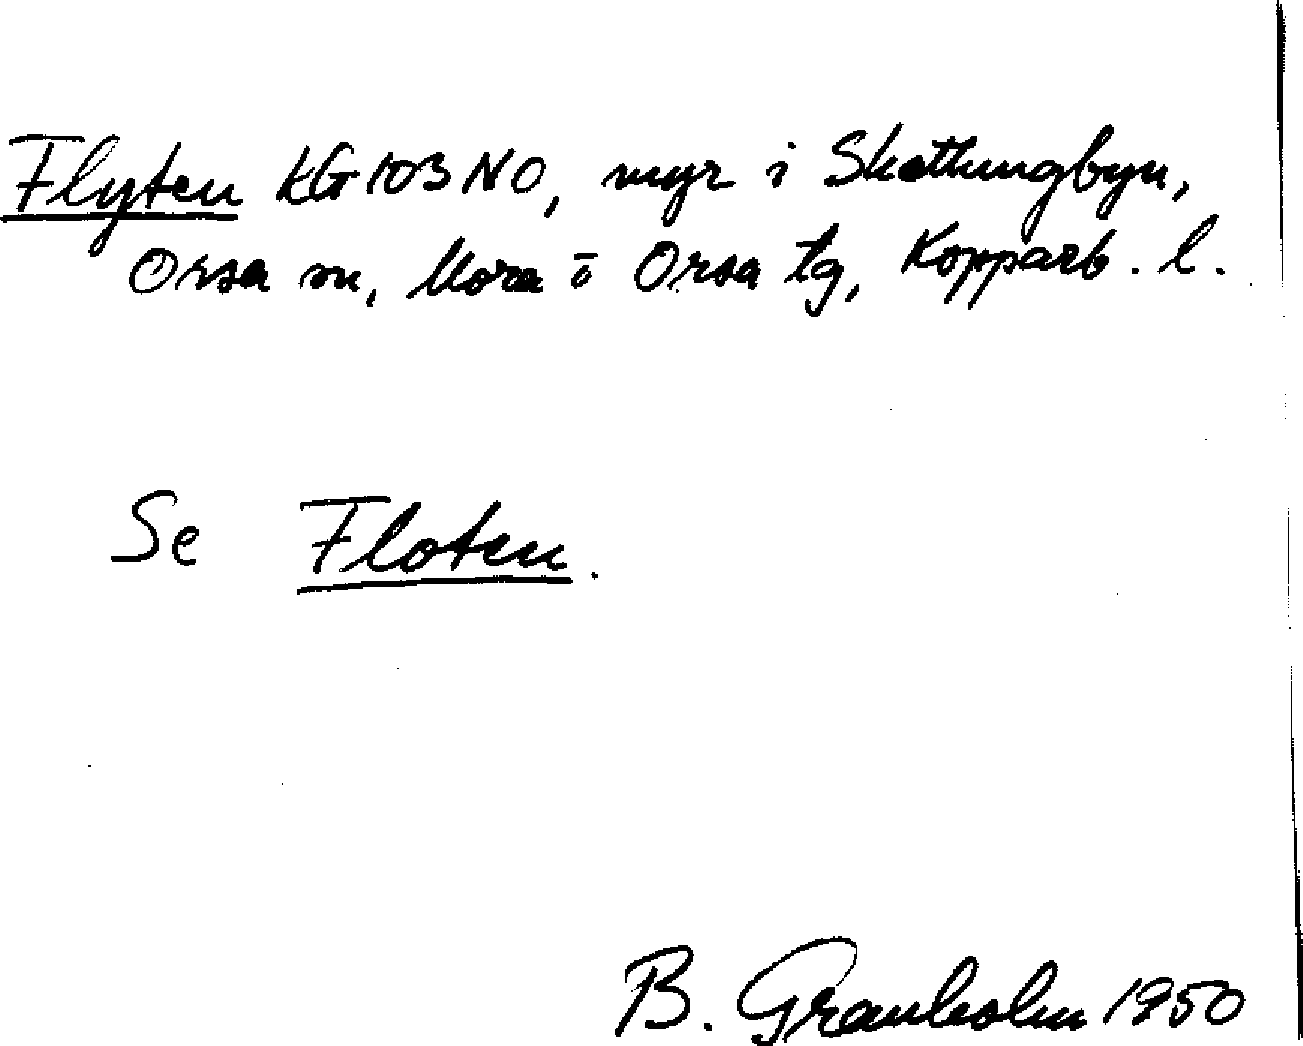 Flyten KG 103 NO, myr i Skattungbyn,
Orsa sn, Mora o Orsa tg, Kopparb. l.
Se Floten.
B. Granholm 1950